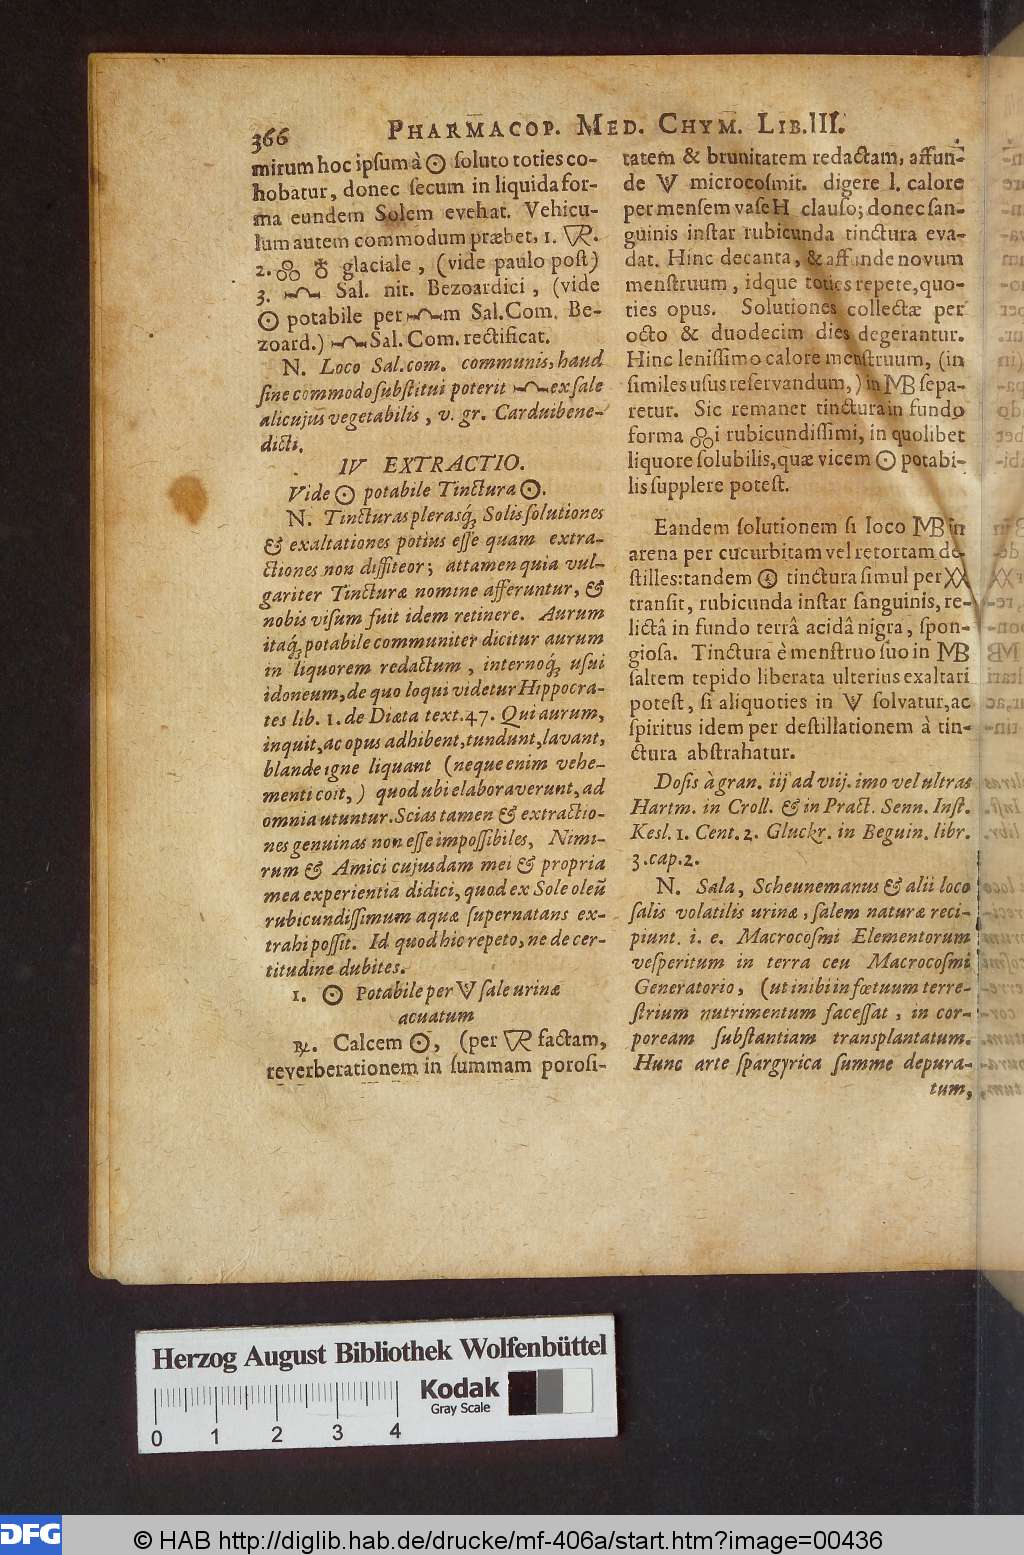 366
PHARMACOP. MED. CHYM. LIB.III.
mirum hoc ipſum à ☉ ſoluto toties co-
hobatur, donec ſecum in liquida for-
ma eundem Solem evehat. Vehicu-
lum autem commodum præbet, 1. R.
2. glaciale, (vide paulo poſt)
3. Sal. nit. Bezoardici, (vide
☉ potabile per m Sal. Com. Be-
zoard.) Sal. Com. rectificat.
N. Loco Sal. com. communis, haud
ſine commodo ſubſtitui poterit ex ſale
alicujus vegetabilis, v. gr. Cardui bene-
dicti.
IV EXTRACTIO.
Vide ☉ potabile Tinctura ☉.
N. Tincturas pleraſq́; Solis ſolutiones
& exaltationes potius eſſe quam extra-
ctiones non diffiteor; attamen quia vul-
gariter Tincturæ nomine afferuntur, &
nobis viſum fuit idem retinere. Aurum
itaq́; potabile communiter dicitur aurum
in liquorem redactum, internoq́; uſui
idoneum, de quo loqui videtur Hippocra-
tes lib. 1. de Diæta text. 47. Qui aurum,
inquit, ac opus adhibent, tundunt, lavant,
blande igne liquant (neque enim vehe-
menti coit,) quod ubi elaboraverunt, ad
omnia utuntur. Scias tamen & extractio-
nes genuinas non eſſe impoſſibiles, Nimi-
rum & Amici cujusdam mei & propria
mea experientia didici, quod ex Sole oleũ
rubicundiſſimum aquæ ſupernatans ex-
trahi poſſit. Id quod hic repeto, ne de cer-
titudine dubites.
1. ☉ Potabile per ſale urinæ
acuatum
℞. Calcem ☉, (per R factam,
reverberationem in ſummam poroſi-
tatem & brunitatem redactam, affun-
de microcoſmit. digere l. calore
per menſem vaſe H clauſo; donec ſan-
guinis inſtar rubicunda tinctura eva-
dat. Hinc decanta, & affunde novum
menſtruum, idque toties repete, quo-
ties opus. Solutiones collectæ per
octo & duodecim dies degerantur.
Hinc leniſſimo calore menſtruum, (in
ſimiles uſus reſervandum,) in MB ſepa-
retur. Sic remanet tinctura in fundo
forma i rubicundiſſimi, in quolibet
liquore ſolubilis, quæ vicem ☉ potabi-
lis ſupplere poteſt.
Eandem ſolutionem ſi loco MB in
arena per cucurbitam vel retortam de-
ſtilles: tandem tinctura ſimul per XX
tranſit, rubicunda inſtar ſanguinis, re-
lictâ in fundo terrâ acidâ nigra, ſpon-
gioſa. Tinctura è menſtruo ſuo in MB
ſaltem tepido liberata ulterius exaltari
poteſt, ſi aliquoties in ſolvatur, ac
ſpiritus idem per deſtillationem à tin-
ctura abſtrahatur.
Doſis à gran. iij ad viij. imo vel ultra
Hartm. in Croll. & in Pract. Senn. Inſt.
Kesl. 1. Cent. 2. Gluckr. in Beguin. libr.
3. cap. 2.
N. Sala, Scheunemanus & alii loco
ſalis volatilis urinæ, ſalem naturæ reci-
piunt. i. e. Macrocoſmi Elementorum
veſperitum in terra ceu Macrocoſmi
Generatorio, (ut inibi in fœtuum terre-
ſtrium nutrimentum faceſſat, in cor-
poream ſubſtantiam transplantatum.
Hunc arte ſpargyrica ſumme depura-
tum,
Herzog August Bibliothek Wolfenbüttel
Kodak
Gray Scale
0 1 2 3 4
DFG
© HAB http://diglib.hab.de/drucke/mf-406a/start.htm?image=00436